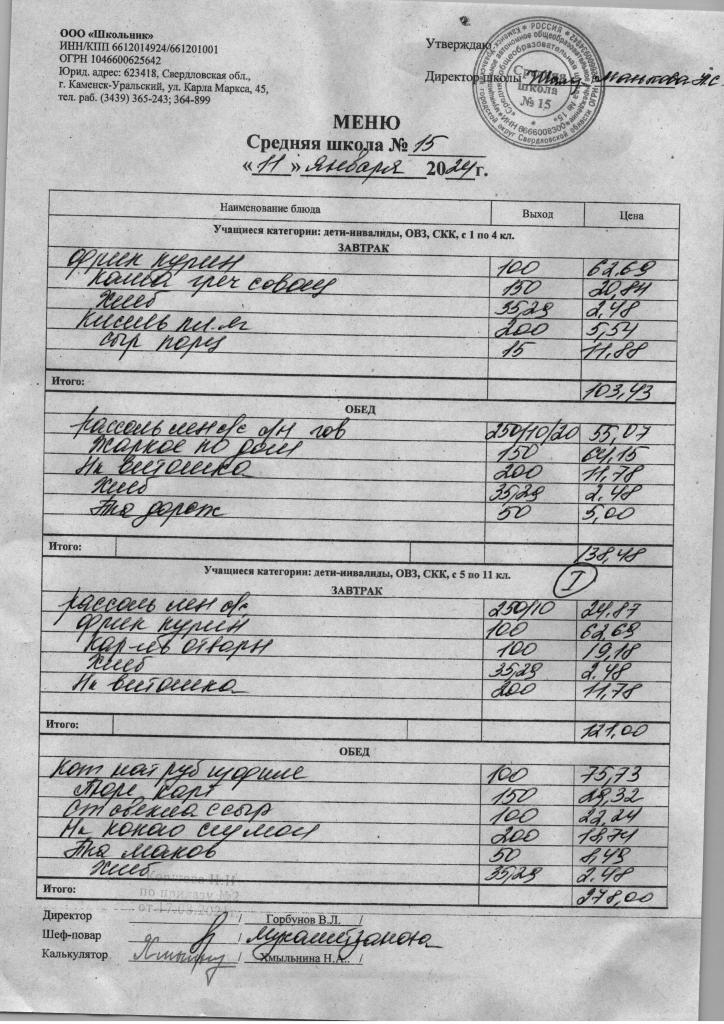 ООО «Школьник»
ИНН/КПП 6612014924/661201001
ОГРН 1046600625642
Юрид. адрес: 623418, Свердловская обл.,
г. Каменск-Уральский, ул. Карла Маркса, 45,
тел. раб. (3439) 365-243; 364-899
Утверждаю
Директор школы
Средняя школа № 15
МЕНЮ
Средняя школа № 15
« 11 » января 2024г.
Наименование блюда Выход Цена
Учащиеся категории: дети-инвалиды, ОВЗ, СКК, с 1 по 4 кл.
ЗАВТРАК
фрик курин 100 62,69
каша греч с овощ 150 20,84
хлеб 35,29 2,48
кисель пл.яг 200 5,54
сыр порц 15 11,88
Итого: 103,43
ОБЕД
рассольник лен гов 250/10/20 55,07
жаркое по дом 150 64,15
Нк витошка 200 11,78
хлеб 35,29 2,48
дорож 50 5,00
Итого: 138,48
Учащиеся категории: дети-инвалиды, ОВЗ, СКК, с 5 по 11 кл. I
ЗАВТРАК
рассоль лен 250/10 24,87
фрик курин 100 62,69
кар-ль отварн 100 19,18
хлеб 35,29 2.48
Нк витошка 200 11,78
Итого: 121,00
ОБЕД
Кот нат руб 100 75,73
Пюре карт 150 29,32
свекла с сыр 100 22,24
Нк какао 200 18,74
маков 50 8,49
хлеб 35,29 2.48
Итого:
по приказу №
Директор / Горбунов В.Л. /
Шеф-повар /
Калькулятор / Хмыльнина Н.А.. /